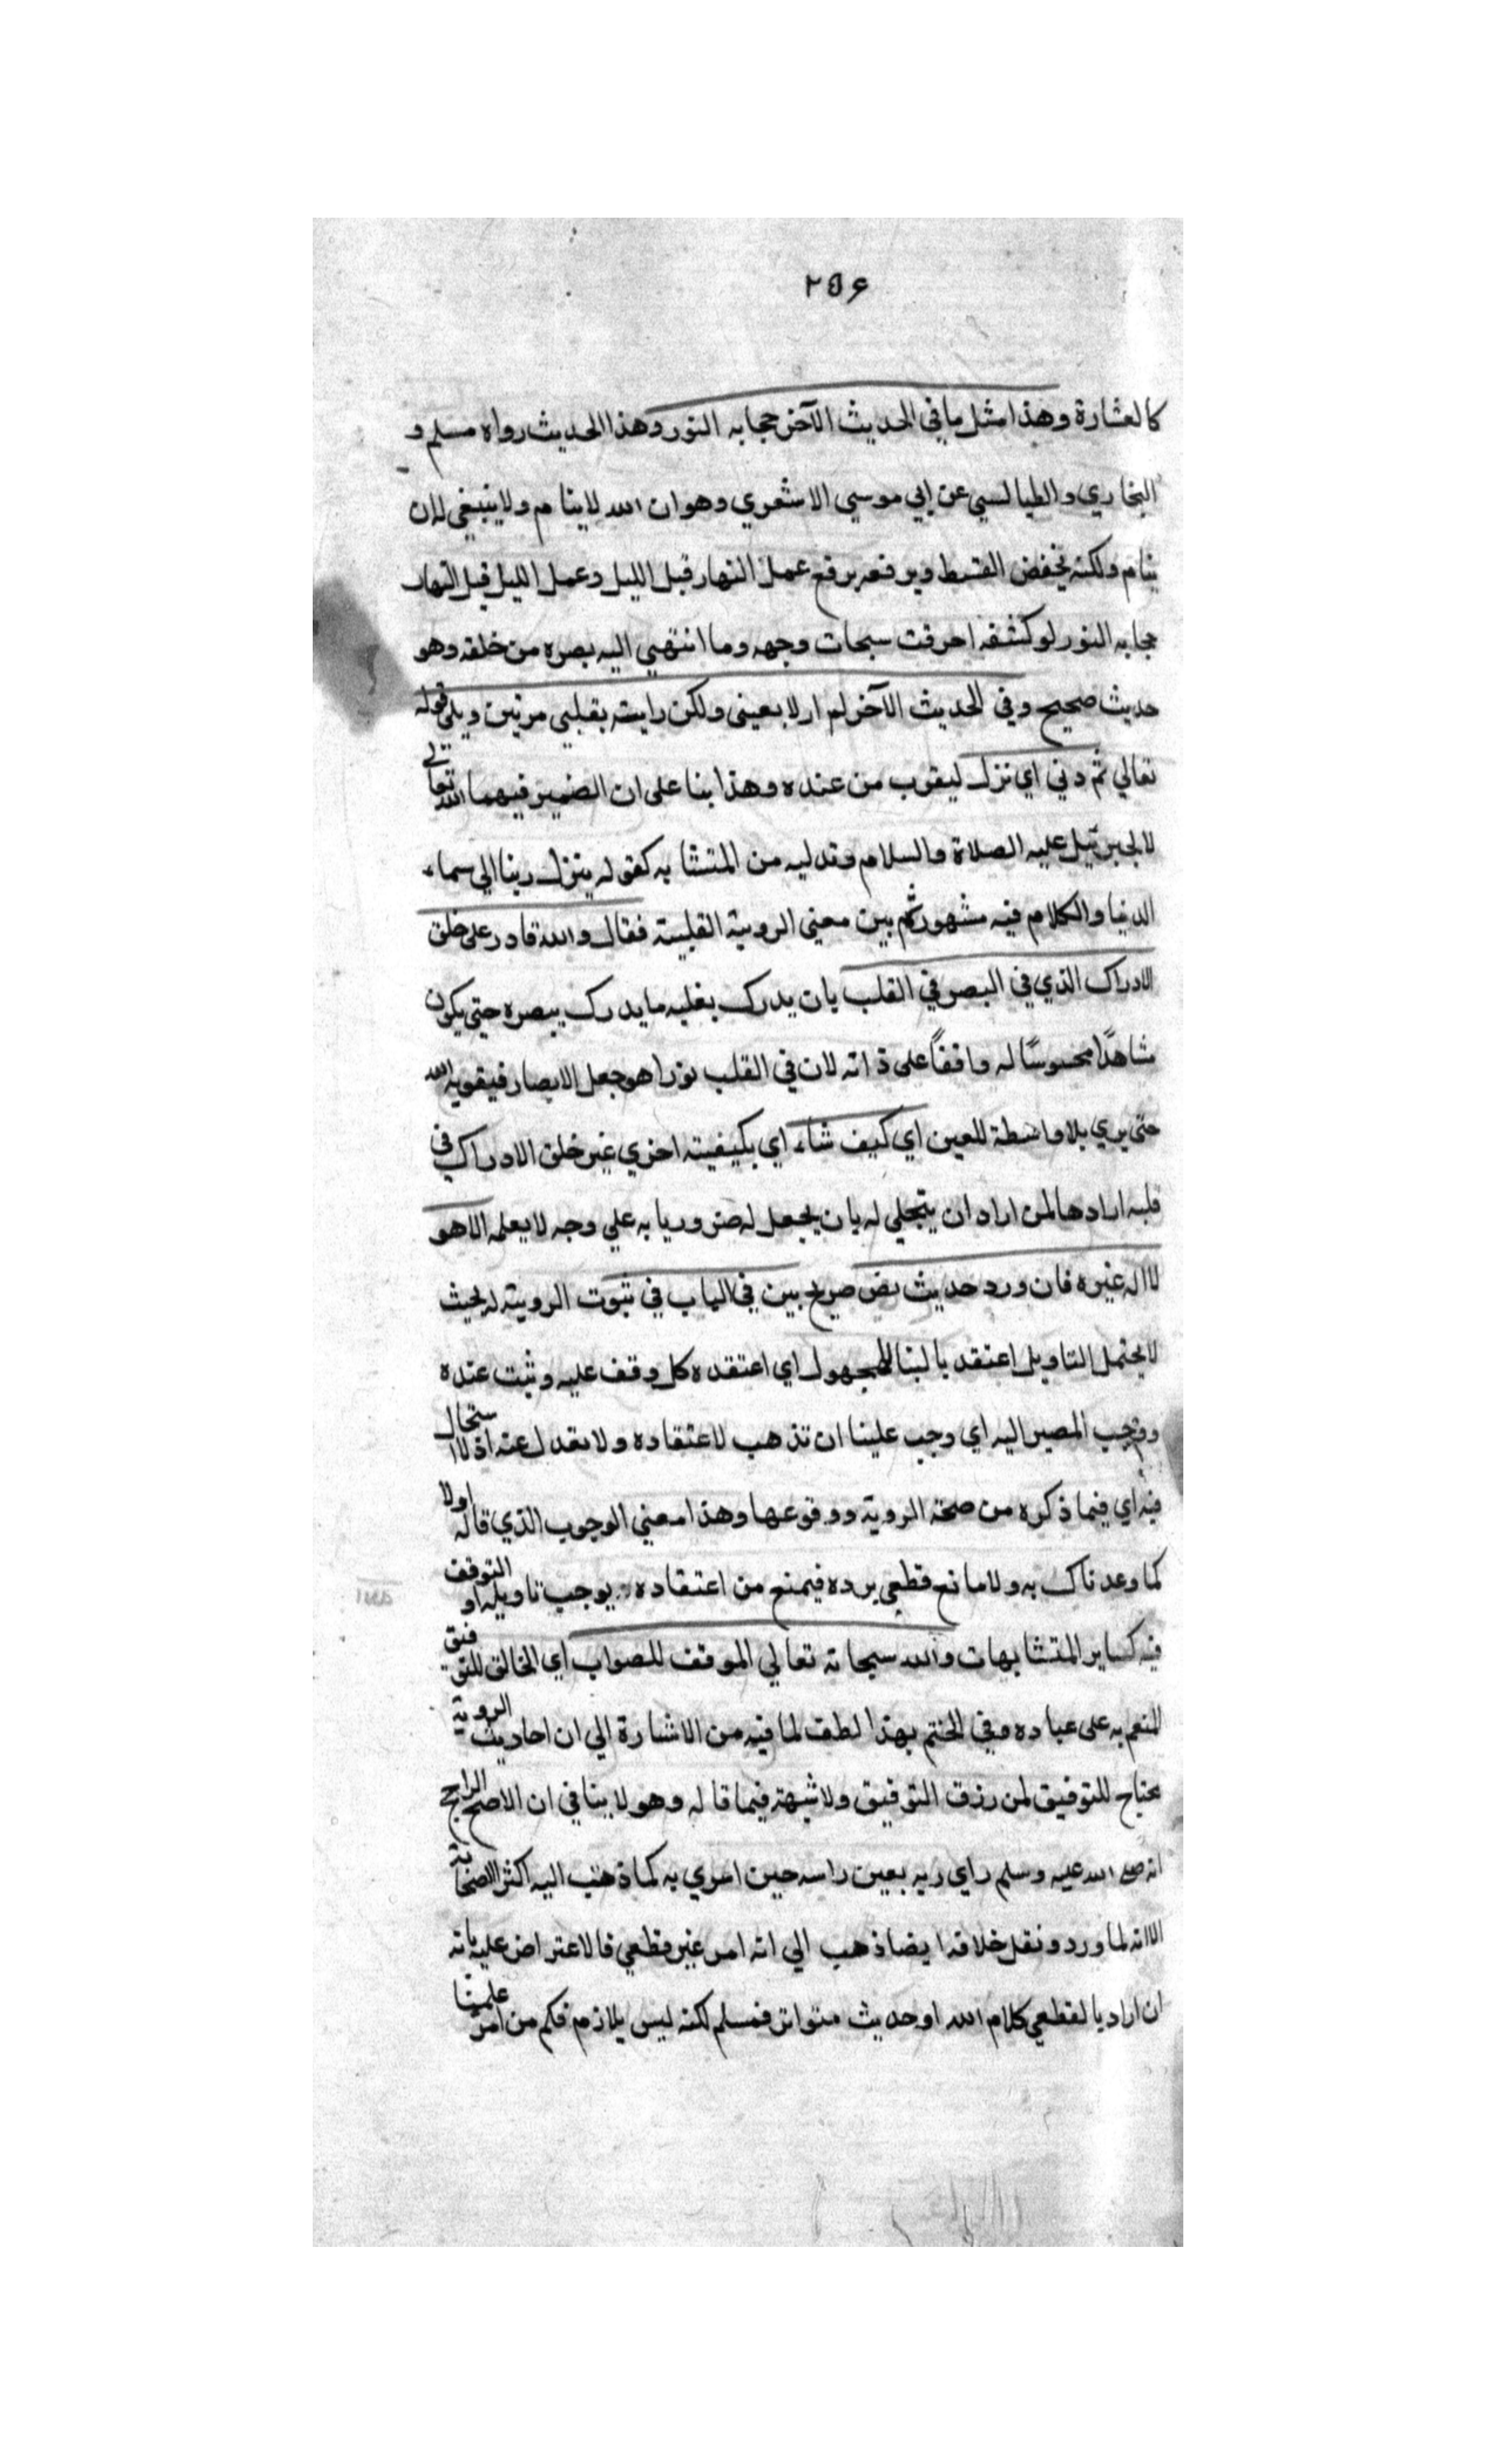 ٢٥٦
كالغشارة وهذا مثل ما في الحديث الآخر حجابه النور وهذا الحديث رواه مسلم و
البخاري والطيالسي عن ابي موسي الاشعري وهو ان الله لا ينام ولا ينبغي له ان
ينام ولكنه يخفض القسط ويرفعه يرفع عمل النهار قبل الليل وعمل الليل قبل النهار
حجابه النور لو كشفه احرقت سبحات وجهه وما انتهي اليه بصره من خلقه وهو
حديث صحيح وفي الحديث الآخر لم اره بعيني ولكن رايته بقلبي مرتين وتلي قوله
تعالي ثم دني اي نزل ليقرب من عنده وهذا بنا على ان الضمير فيهما لله تعالي
لا لجبرئيل عليه الصلاة والسلام وتدليه من المتشابه كقوله ينزل ربنا الي سماء
الدنيا والكلام فيه مشهور ثم بين معني الروية القلبية فقال والله قادر على خلق
الادراك الذي في البصر في القلب بان يدرك بقلبه ما يدرك ببصره حتي يكون
شاهدًا محسوسًا له واقفاً على ذاته لان في القلب نورا هو جعل الابصار فيقويه الله
حتي يري بلا واسطة للعين اي كيف شاء اي بكيفيته اخري غير خلق الادراك في
قلبه ارادها لمن اراد ان يتجلي له بان يجعل له ضروريا به علي وجه لا يعلمه الا هو
لا اله غيره فان ورد حديث نص صريح بين في الباب في ثبوت الروية له بحيث
لا يحتمل التاويل اعتقد بالبنا للمجهول اي اعتقده كل وقف عليه وثبت عنده
ووجب المصير اليه اي وجب علينا ان نذهب لاعتقاده ولا نعدل عنه اذ لا استحال
فيه اي فيما ذكره من صحة الروية ووقوعها وهذا معني الوجوب الذي قاله اولا
كما وعدناك به ولا مانع قطعي يرده فيمنع من اعتقاده يوجب تاويله او التوقف
فيه كساير المتشابهات والله سبحانه تعالي الموفق للصواب اي الخالق للتوفيق
المنعم به على عباده وفي الختم بهذا لطف لما فيه من الاشارة الي ان احاديث الروية
يحتاج للتوفيق لمن رزق التوفيق ولا شبهة فيما قاله وهو لا ينافي ان الاصح الراجح
انه صلى الله عليه وسلم راي ربه بعين راسه حين اسري به كما ذهب اليه اكثر الصحابة
الا انه لما ورد ونقل خلافه ايضا ذهب الي انه امر غير قطعي فالاعتراض عليه بانه
ان اراد بالقطعي كلام الله او حديث متواتر فمسلم لكنه ليس بلازم فكم من امر علمنا